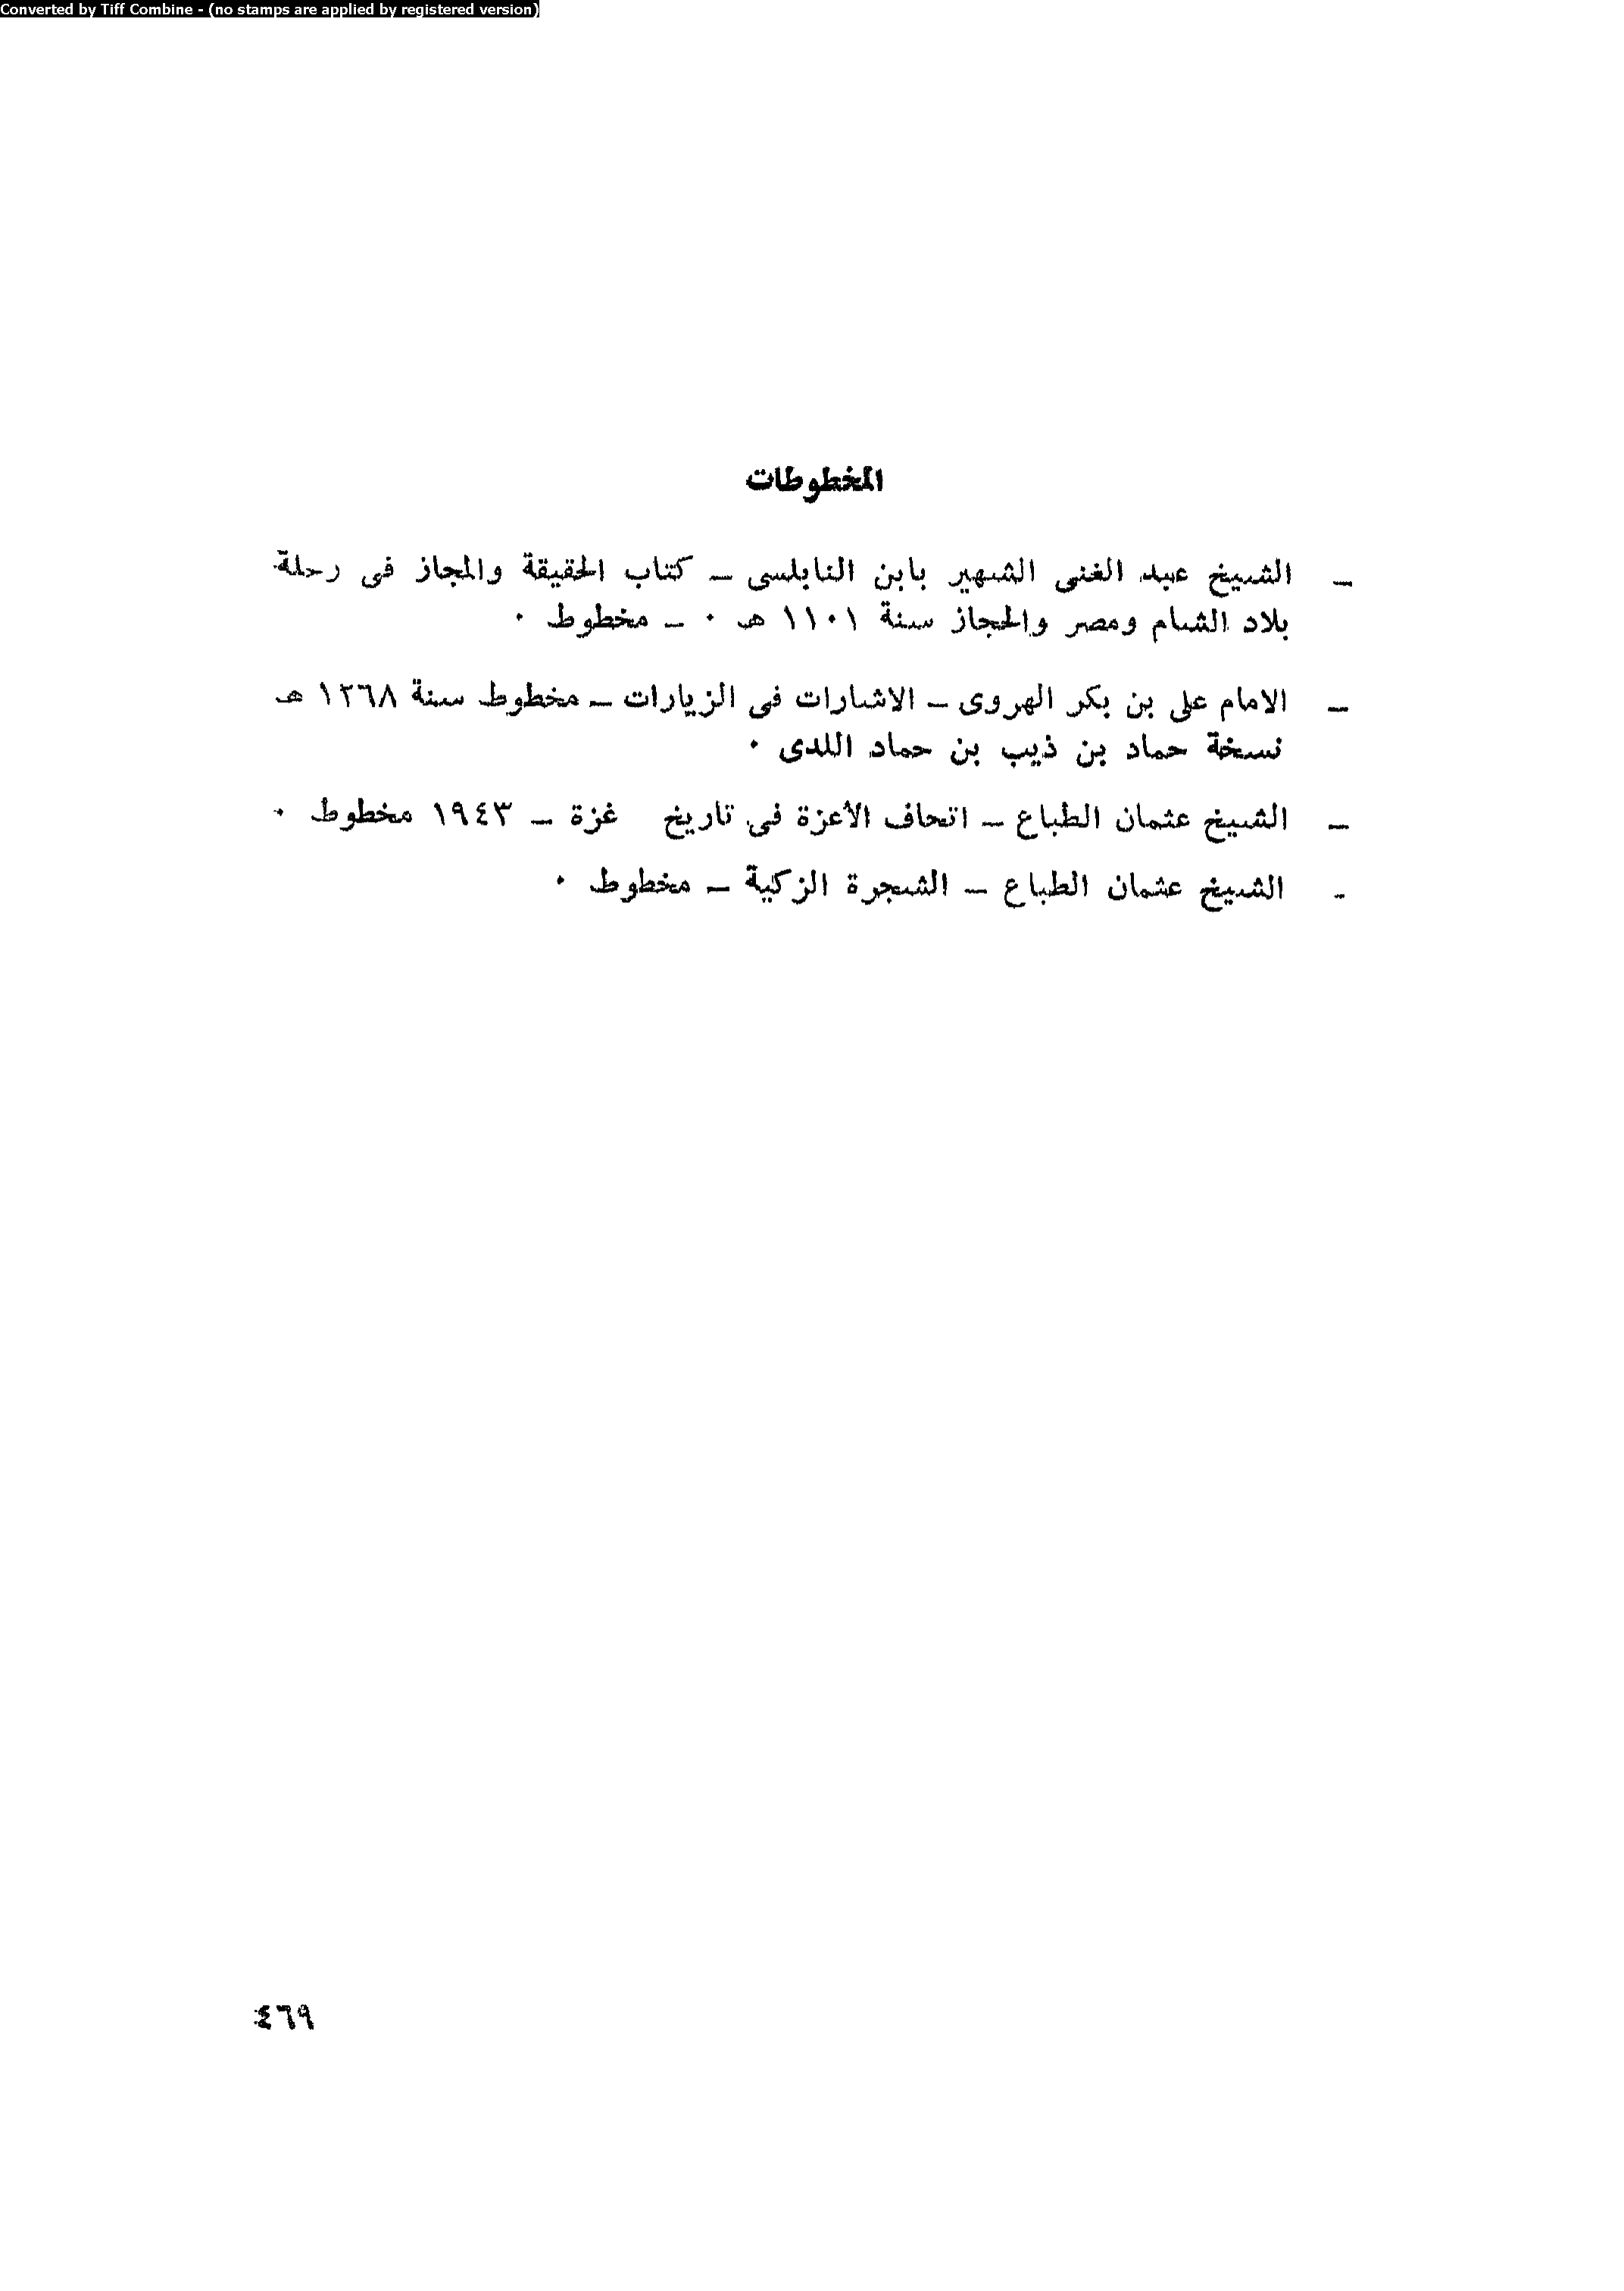 Converted by Tiff Combine - (no stamps are applied by registered version)
المخطوطات
ـ الشيخ عبد الغنى الشهير بابن النابلسى ـ كتاب الحقيقة والمجاز فى رحلة
بلاد الشام ومصر والحجاز سنة ١١٠١ هـ ٠ ـ مخطوط ٠
ـ الامام على بن بكر الهروى ـ الاشارات فى الزيارات ـ مخطوط سنة ١٢٦٨ هـ
نسخة حماد بن ذيب بن حماد اللدى ٠
ـ الشيخ عثمان الطباع ـ اتحاف الأعزة فى تاريخ غزة ـ ١٩٤٣ مخطوط ٠
ـ الشيخ عثمان الطباع ـ الشجرة الزكية ـ مخطوط ٠
٤٦٩